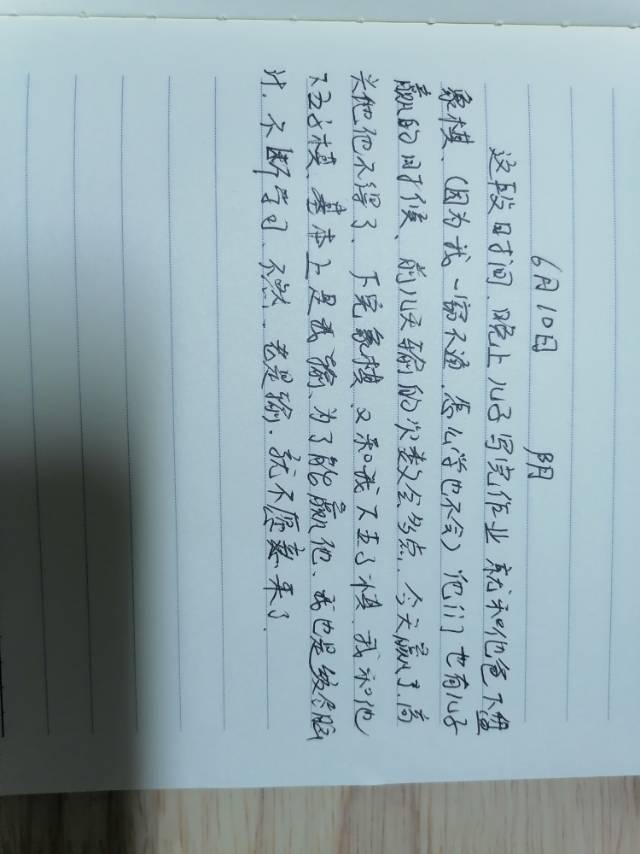 6月10日 阴
这段时间、晚上儿子写完作业就和他爸下盘
象棋、(因为我一窍不通、怎么学也不会)他们也有儿子
赢的时候、前几天输的次数会多点、今天赢了、高
兴他他不得了、下完象棋、又和我下五子棋、我和他
下五子棋、基本上是我输、为了能赢他、我也是绞尽脑
汁、不断学习、不然、老是输、就不愿意来了.